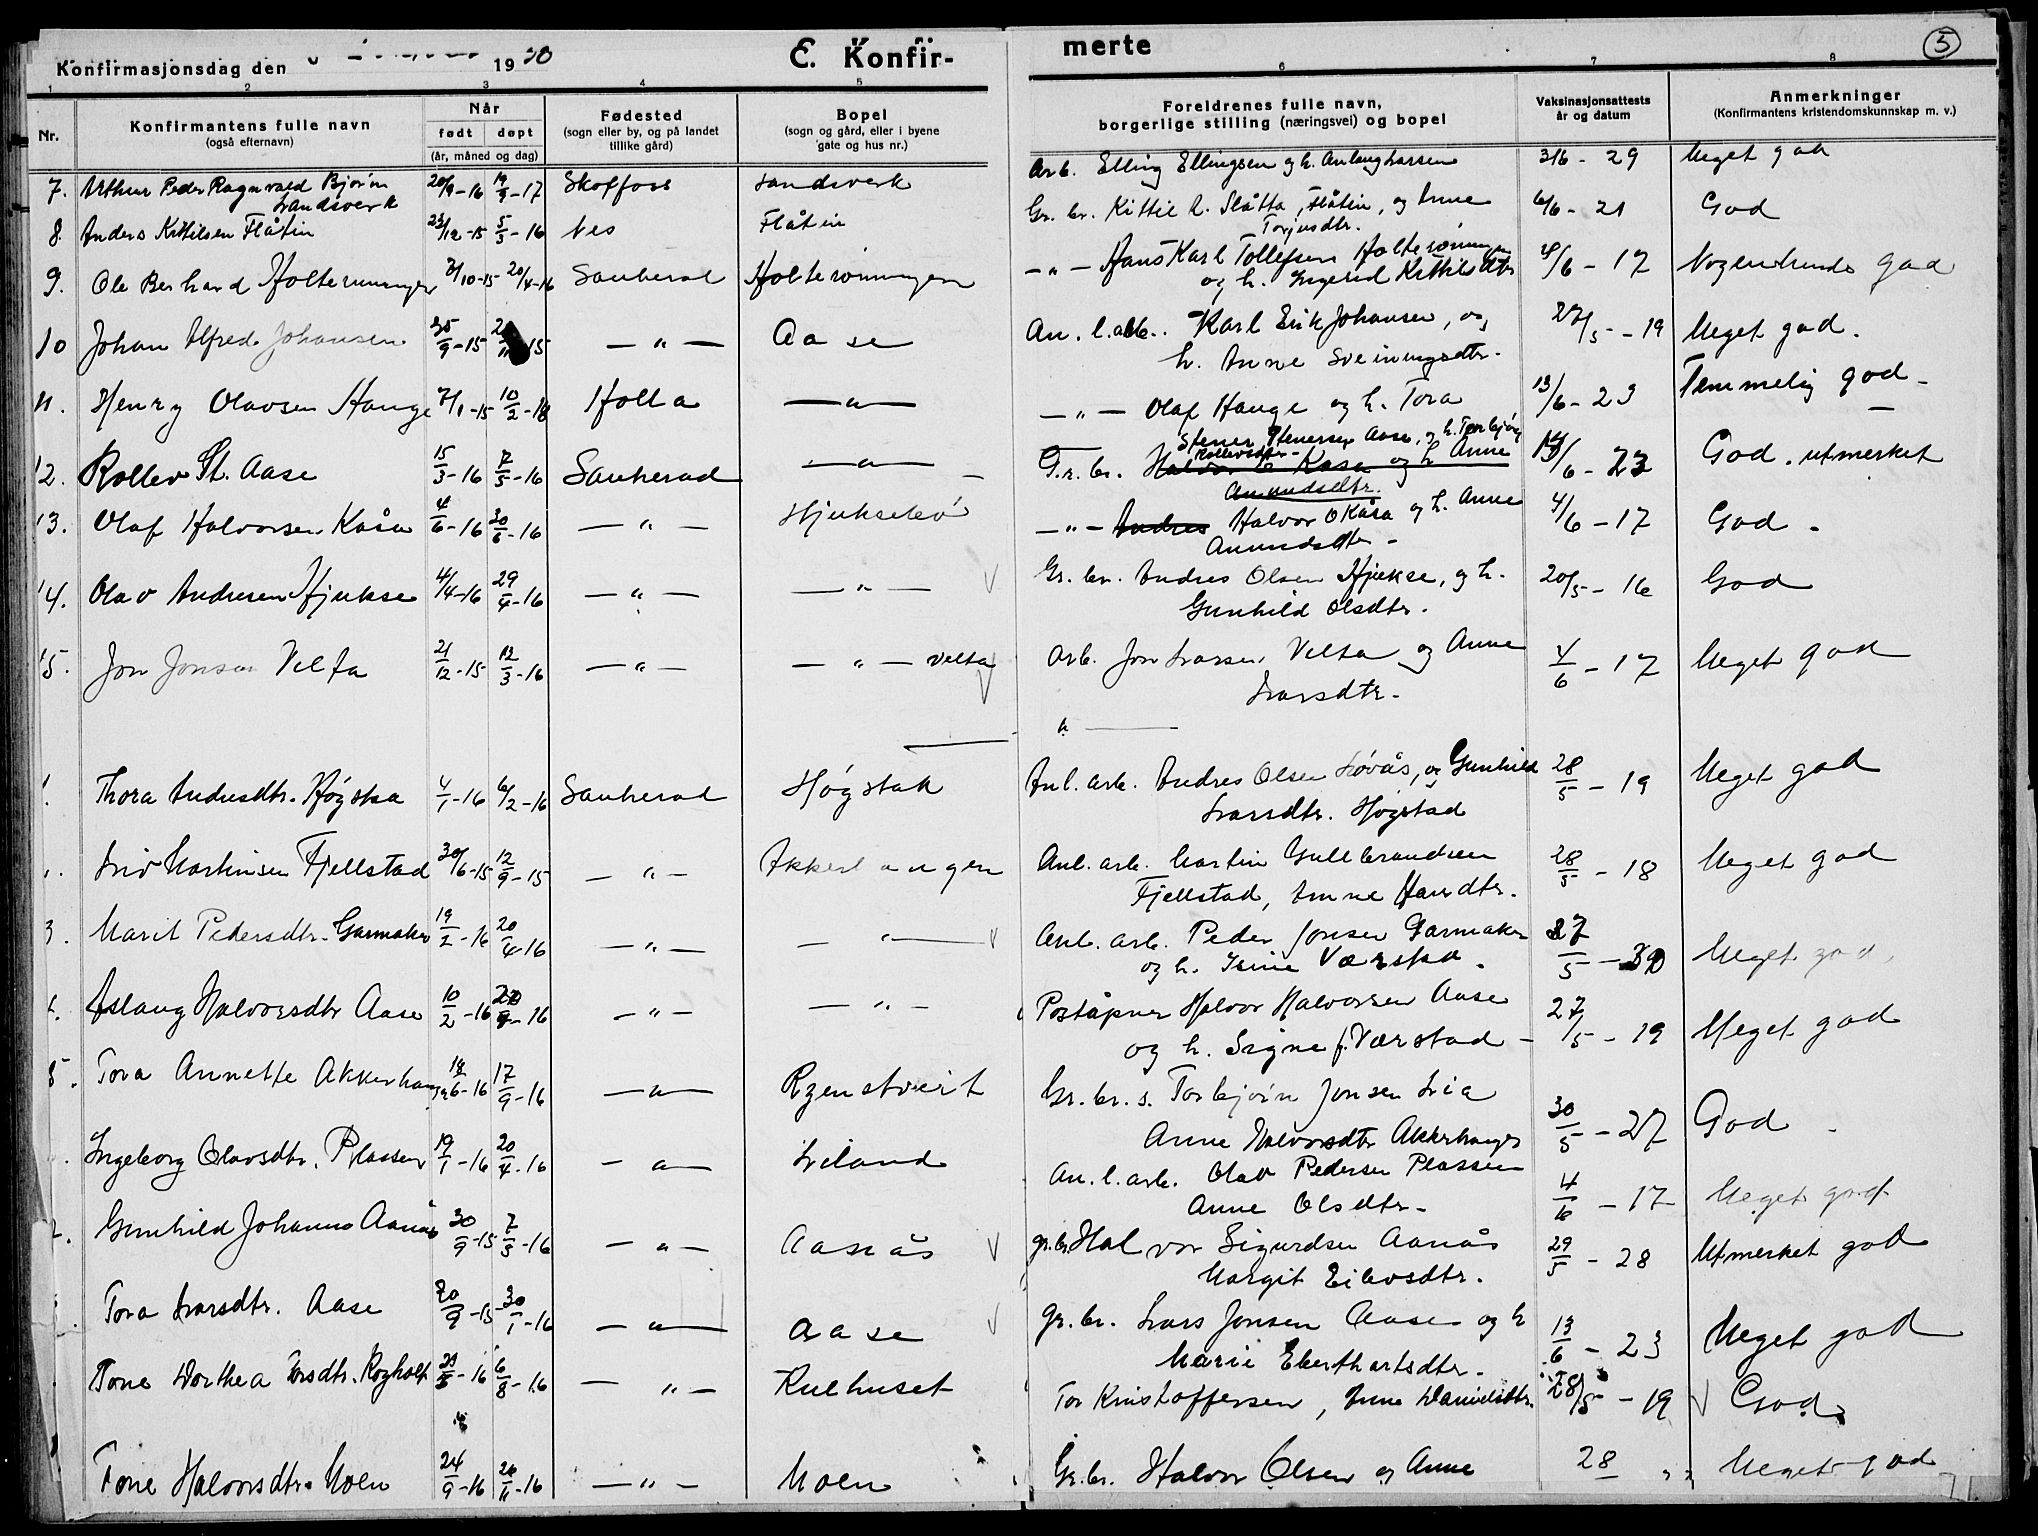 Konfirmasjonsdag den 19 30 E. Konfir- merte 5
1 2 3 4 5 6 7 8
Nr. Konfirmantens fulle navn (også efternavn) Når født døpt (år, måned og dag) Fødested (sogn eller by, og på landet tillike gård) Bopel (sogn og gård, eller i byene gate og hus nr.) Foreldrenes fulle navn, borgerlige stilling (næringsvei) og bopel Vaksinasjonsattests år og datum Anmerkninger (Konfirmantens kristendomskunnskap m. v.)
7. Arthur Peder Ragnvald Bjørn Landsverk 20/9-16 Skotfoss Landsverk Arb. Elling Ellingsen og h. Anlaug Larsen 3/6 - 29 Meget god
8. Anders Kittilsen Flåtin 23/12-15 5/3-16 Nes Flåtin Gr. br. Kittil A. Slåtta, Flåtin, og Anne Torjusdtr. 6/6 - 21 God
9. Ole Berhard Holterønningen 7/10-15 20/4-16 Sauherad Holterønningen -"- Hans Karl Tollefsen Holterønningen og h. Ingerid Kittilsdtr 4/6 - 17 Nogenlunde god
10 Johan Alfred Johansen 9-15 15 -"- Aase An. l. arb. Karl Erik Johansen, og h. Anne Sveinungsdtr. 27/5 - 19 Meget god.
11. Henry Olavsen Hauge 7/1-15 10/2-18 Holla -"- -"- Olaf Hauge og h. Tora 13/6 - 23 Temmelig god -
12. Rollev St. Aase 15/3-16 7/5-16 Sauherad -"- Gr. br. Stener Stenersen Aase, og h. Torbjørg Rollevsdtr. Halvor O Kasa og h Anne Amundsdtr. 6 - 23 God. utmerket
13. Olaf Halvorsen Kåsa 4/6-16 30/6-16 -"- Hjuksebø -"- Andres Halvor O Kåsa og h. Anne Amundsdtr - 4/6 - 17 God -
14. Olav Andresen Hjukse 4/4-16 29/4-16 -"- -"- Gr. br. Andres Olsen Hjukse, og h. Gunhild Olsdtr. 20/5 - 16 God
15. Jon Jonsen Velta 21/12-15 12/3-16 -"- -"- Velta Arb. Jon Larsen Velta og Anne Larsdtr. 4/6 - 17 Meget god
1. Thora Andresdtr. Høgstad 4/1-16 6/2-16 Sauherad Høgstad Anl. arb. Andres Olsen Løvås, og Gunhild Larsdtr. Høgstad 28/5 - 19 Meget god
Liv Martinsen Fjellstad 30/6-15 12/9-15 -"- Akkerhaugen Anl. arb. Martin Gulbrandsen Fjellstad, Anne Hansdtr. 28/5 - 18 Meget god
3. Marit Pedersdtr. Garmaker 19/2-16 20/4-16 -"- -"- Anl. arb. Peder Jonsen Garmaker og h. Værstad. 27/5 - Meget god.
Aslaug Halvorsdtr Aase 10/2-16 16 -"- -"- Poståpner Halvor Halvorsen Aase og h. Signe f. Værstad - 27/5 - 19 Meget god
5. Tora Annette Akkerhaugen 18/6-16 17/9-16 -"- Ryenstveit Gr. br. s. Torbjørn Jonsen Lia Anne Halvorsdtr Akkerhaugen 30/5 - 27 God -
Ingeborg Olavsdtr. Plassen 19/1-16 20/4-16 -"- Liland An. l. arb. Olav Pedersen Plassen Anne Olsdtr. 4/6 - 17 Meget god
Gunhild Johanne Aanås 30/9-15 16 -"- Aasnås gr. br. Halvor Sigurdsen Aanås Margit Eilevsdtr. 29/5 - 28 Utmerket god
Tora Larsdtr. Aase 20/9-15 30/1-16 -"- Aase gr. br. Lars Jonsen Aase og h Marie Eberhartsdtr. 13/6 - 23 Meget god
Tone Dorthea Torsdtr. Rogholt 16 6/8-16 -"- Kulhuset Tor Kristoffersen, Anne Danielsdtr. 28/5 - 19 God
Tone Halvorsdtr. Moen 24/9-16 26/11-16 -"- Moen Gr. br. Halvor Olsen og Anne 28 " Meget god